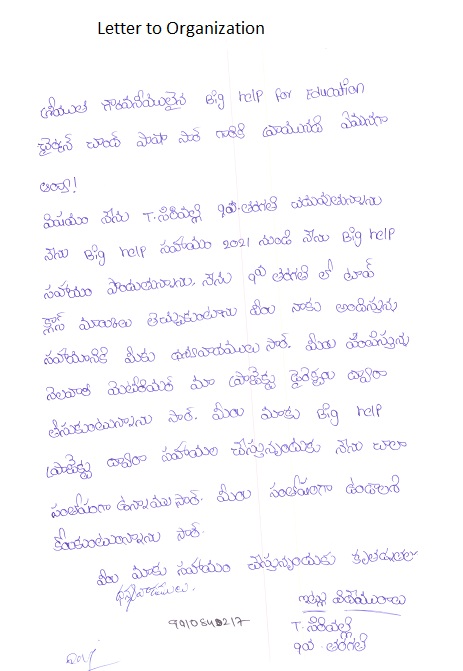 Letter to Organization
శ్రీయుత గౌరవనీయులైన Big help for Education
చైర్మన్ చాంద్ పాషా సార్ గారికి వ్రాయునది ఏమనగా
అంద్రా!
విషయం నేను T. సిరివల్లి 9వ తరగతి చదువుతున్నాను
నేను Big help సహాయం 2021 నుండి నేను Big help
సహాయం పొందుతున్నాను. నేను 9వ తరగతి లో టాప్
క్లాస్ మార్కులు తెచ్చుకుంటాను మీరు నాకు అందిస్తున్న
సహాయానికి మీకు ధన్యవాదములు సార్. మీరు పంపిస్తున్న
నెలవారి మెటీరియల్ మా ప్రాజెక్టు డైరెక్టరు ద్వారా
తీసుకుంటున్నాను సార్. మీరు మాకు Big help
ప్రాజెక్టు ద్వారా సహాయం చేస్తున్నందుకు నేను చాలా
సంతోషంగా ఉన్నాము సార్. మీరు సంతోషంగా ఉండాలని
కోరుకుంటున్నాను సార్.
మీరు మాకు సహాయం చేస్తున్నందుకు కృతజ్ఞతలు
ధన్యవాదములు.
9010540217
ఇట్లు విధేయురాలు
T. సిరివల్లి
9వ తరగతి